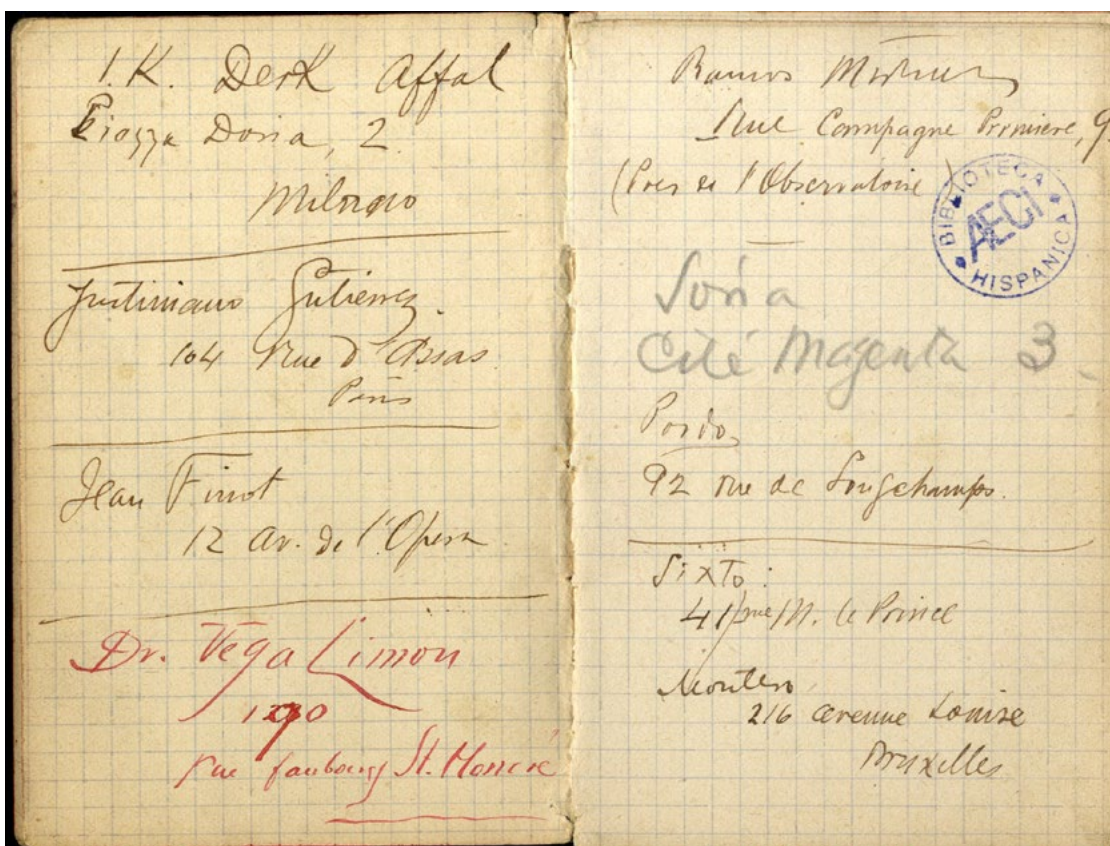 I. K. Derk Affal
Piazza Doria, 2.
Milano
Justiniano Gutierrez
104 Rue d'Assas
Paris
Jean Finot
12 Av. de l'Opera
Dr. Véga Limon
190
rue faubourg St. Honoré
Ramos
Rue Campagne Premiere, 9.
(Près de l'Observatoire)
BIBLIOTECA
AECI
HISPANICA
Soria
Cité Magenta 3
Pardo,
92 rue de Longchamps.
Sixto:
41/rue/M. le Prince
Montero,
216 avenue Louise
Bruxelles